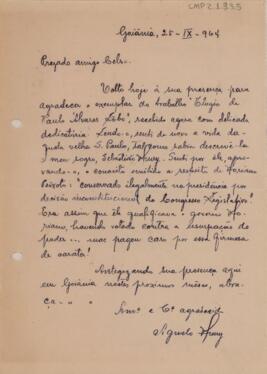 CMP2.1.835
Goiânia, 25-IX-964
Prezado amigo Celso
Volto hoje à sua presença para
agradecer o exemplar do trabalho "Elogio de
Paulo Álvares Lobo", recebido agora com delicada
dedicatória. Lendo-o, senti de novo a vida da-
quela velha S. Paulo, tal como sabia descrevê-la
o meu sogro, Sebastião. Senti por ele, apro-
vando-o, o conceito emitido a respeito de Floriano
Peixoto: "conservado ilegalmente na presidência por
decisão inconstitucional do Congresso Legislativo".
Era assim que ele qualificava o governo Flo-
riano, havendo votado contra a usurpação do
poder... mas pagou caro por essa
Antegozando sua presença aqui
em Goiânia nestes proximos meses, abra-
ça-o o
Amº e Cº agradecido